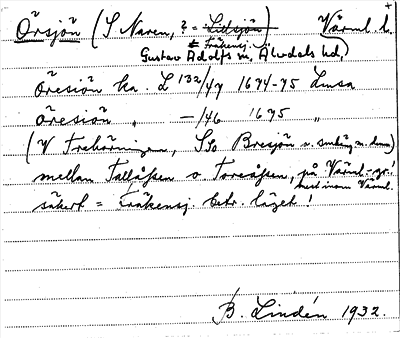 Örsjön (S Naren, ? = Litsjön) Värml. l.
= Fräkensj.
Gustav Adolfs sn, Älvdals hd,
Öresiön ka. L 132/47 1674-75 Lmsa
öresiön " - /46 1675 "
(V Trehörningen, SSo Bresjön n. smbg m. denn)
mellan Tallåssen o. Toreåsen, på Värml.-gr.!
mest inom Värml.
säkert = Fräkensj. betr. läget!
B. Lindén 1932.